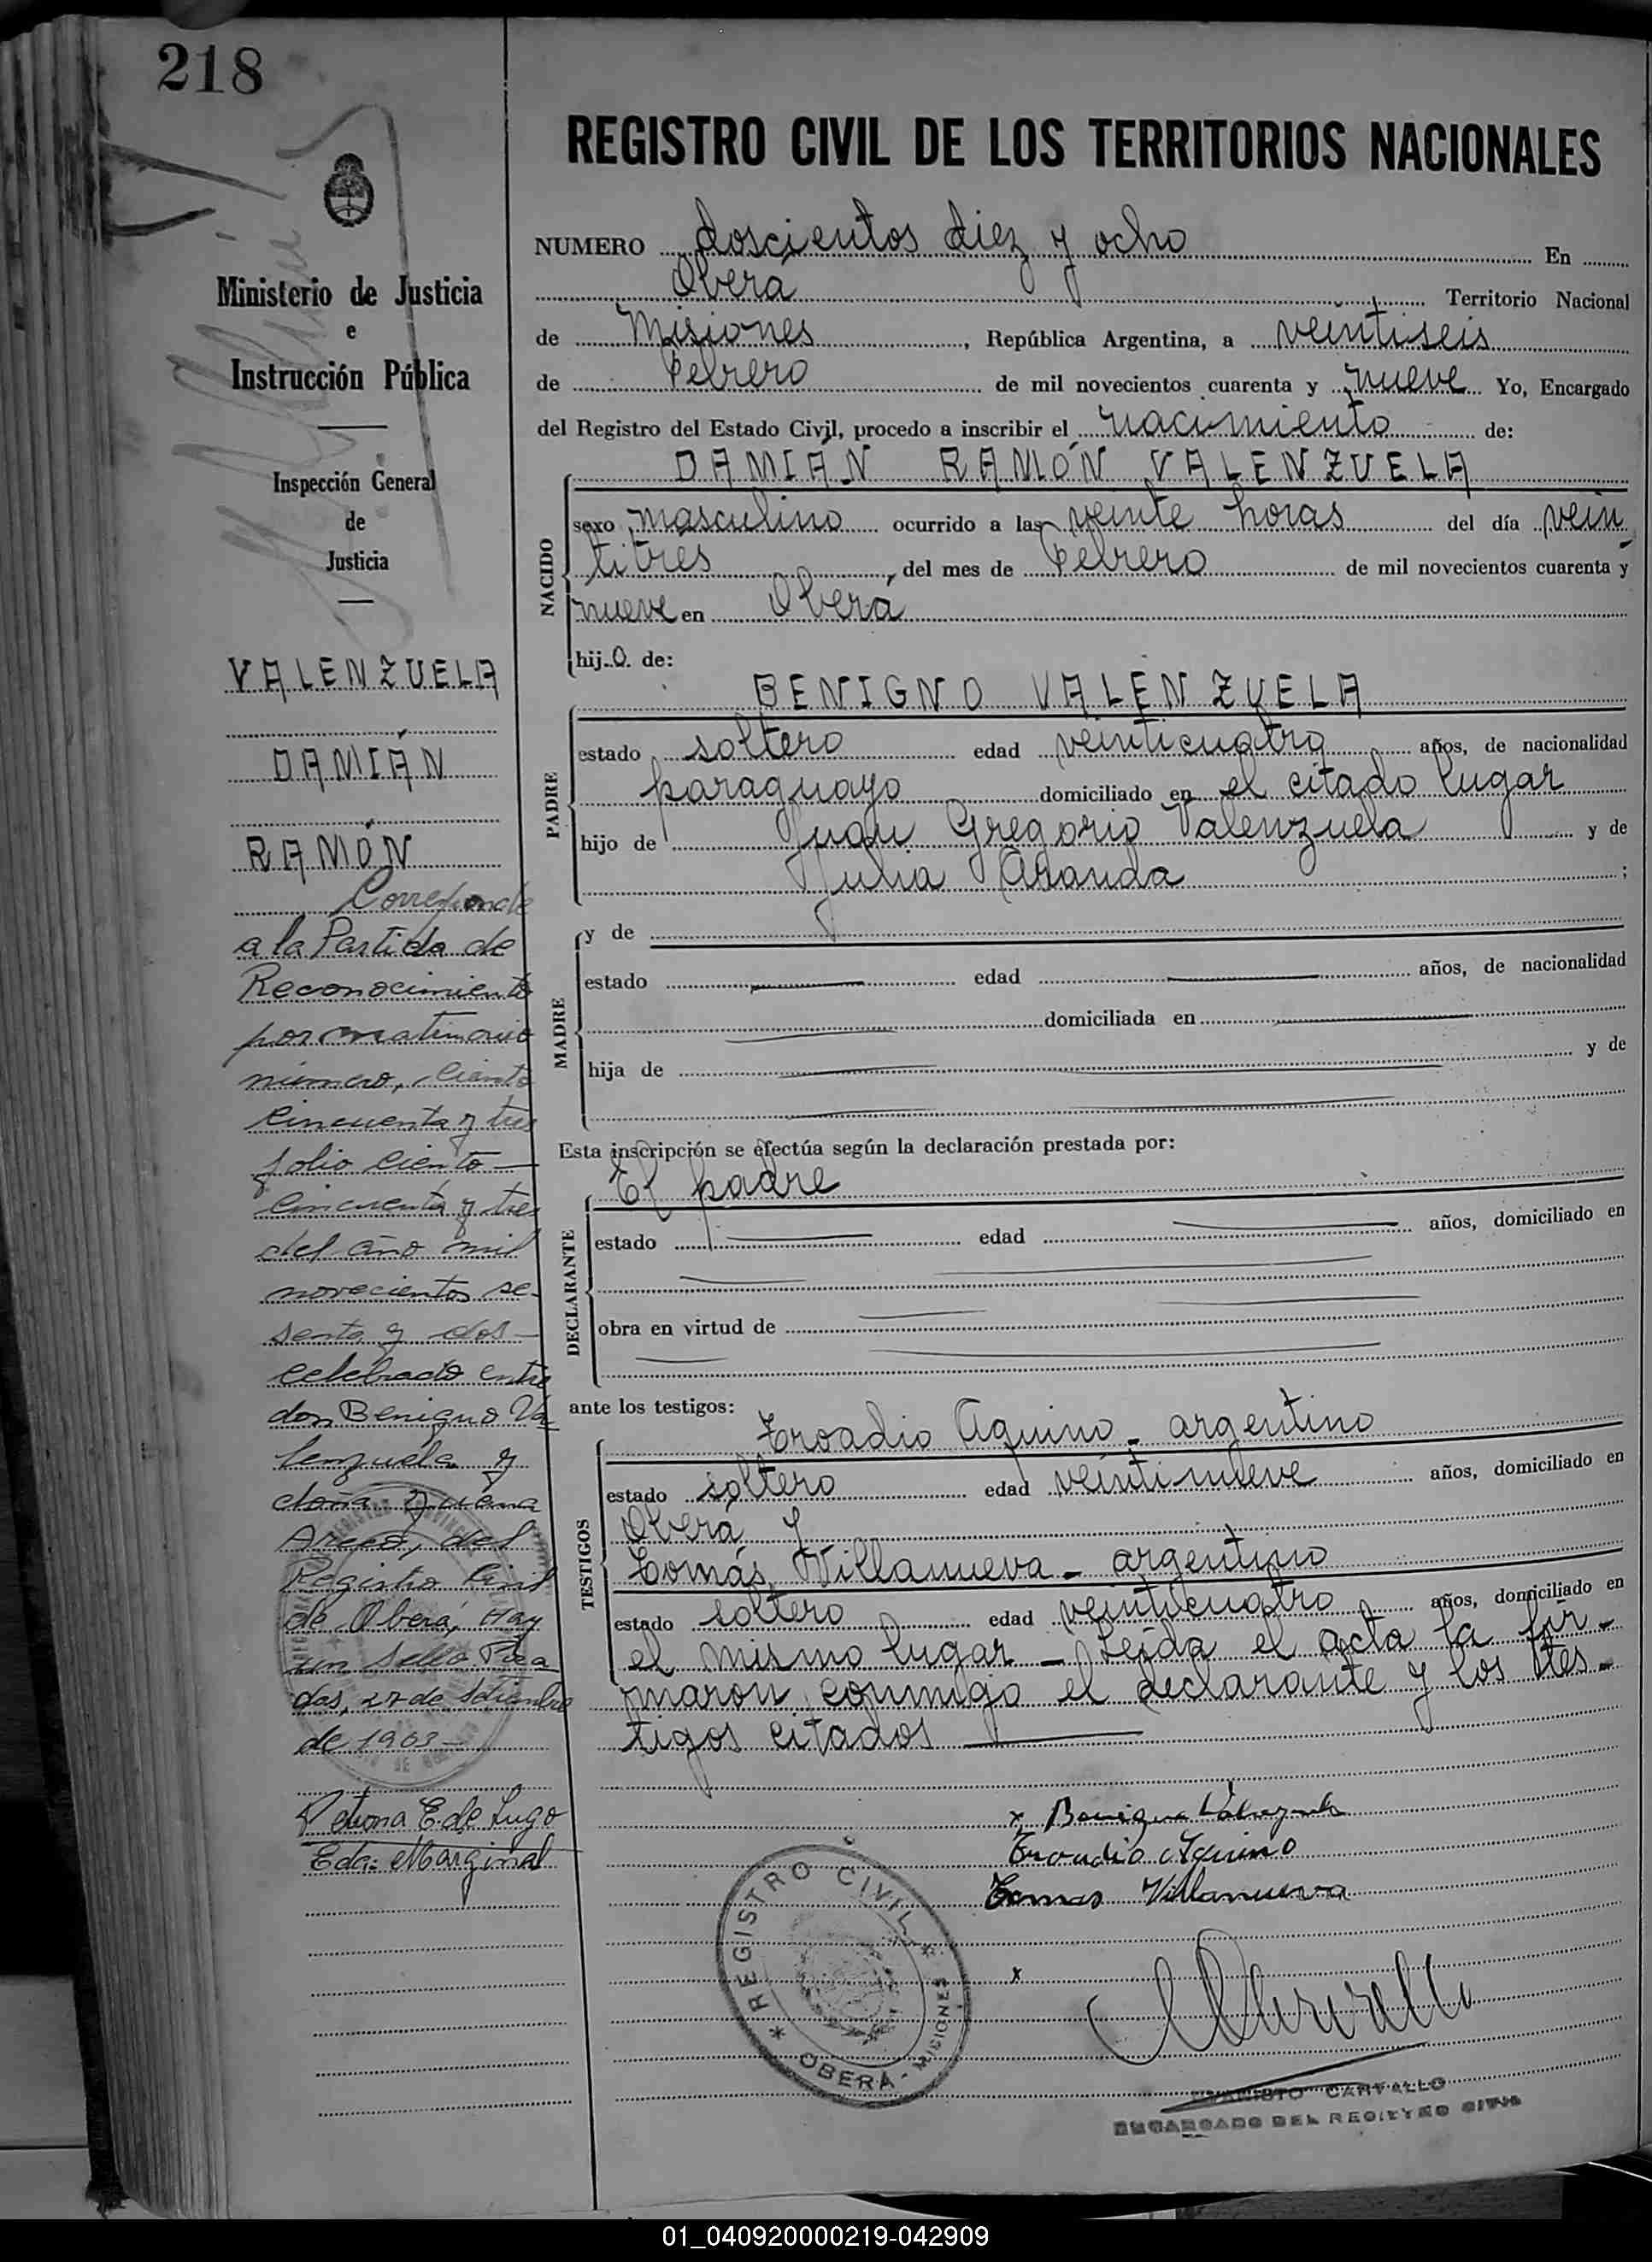 218
Ministerio de Justicia
e
Instrucción Pública
Inspección General
de
Justicia
VALENZUELA
DAMIÁN
RAMÓN
Corresponde
a la Partida de
Reconocimiento
por matrimonio
número, ciento
cincuenta y tres
folio ciento
cincuenta y tres
del año mil
novecientos se-
senta y dos-
celebrado entre
don Benigno Va
lenzuela y
doña
del
Registro Civil
de Oberá, Hay
un sello. Posa
das, 27 de Setiembre
de 1963-
E. de Lugo
Eda: Marginal
REGISTRO CIVIL DE LOS TERRITORIOS NACIONALES
NUMERO doscientos diez y ocho En
Oberá Territorio Nacional
de Misiones, República Argentina, a veintiseis
de Febrero de mil novecientos cuarenta y nueve Yo, Encargado
del Registro del Estado Civil, procedo a inscribir el nacimiento de:
DAMIÁN RAMÓN VALENZUELA
NACIDO
sexo masculino ocurrido a las veinte horas del día vein
titrés, del mes de Febrero de mil novecientos cuarenta y
nueve en Oberá
hij.o. de:
BENIGNO VALENZUELA
PADRE
estado soltero edad veinticuatro años, de nacionalidad
paraguayo domiciliado en el citado lugar
hijo de Juan Gregorio Valenzuela y de
Julia Aranda ;
MADRE
y de
estado edad años, de nacionalidad
domiciliada en
hija de y de
Esta inscripción se efectúa según la declaración prestada por:
El padre
DECLARANTE
estado edad años, domiciliado en
obra en virtud de
ante los testigos:
TESTIGOS
Troadio Aquino - argentino
estado soltero edad veintinueve años, domiciliado en
Oberá y
Tomás Villanueva - argentino
estado soltero edad veinticuatro años, domiciliado en
el mismo lugar - Leída el acta la fir-
maron conmigo el declarante y los tes-
tigos citados
x Benigno Valenzuela
Troadio Aquino
Tomas Villanueva
x
* REGISTRO CIVIL *
OBERÁ - MISIONES
EVARISTO CARVALLO
ENCARGADO DEL REGISTRO CIVIL
01_040920000219-042909